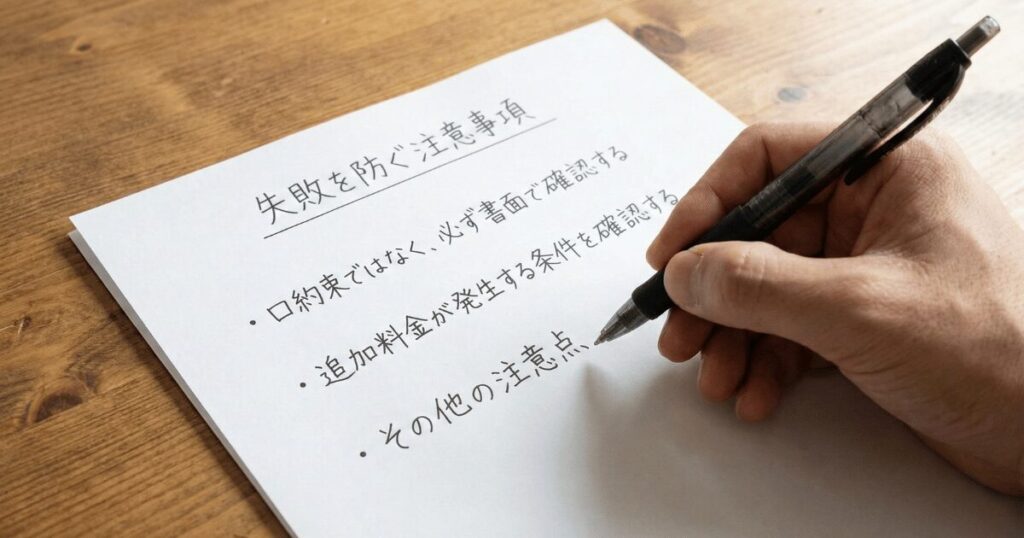 失敗を防ぐ注意事項
・口約束ではなく、必ず書面で確認する
・追加料金が発生する条件を確認する
・その他の注意点、